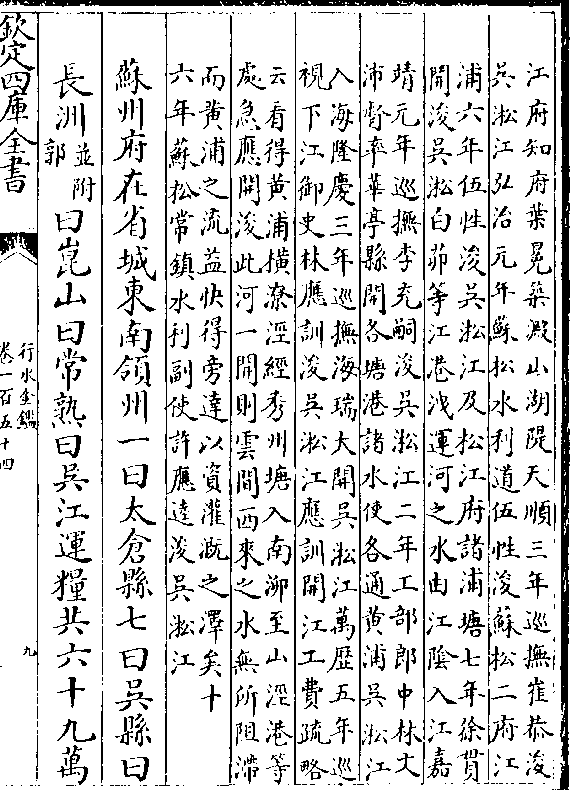 江府知府葉冕築澱山湖隄天順三年巡撫崔恭浚
吳淞江弘治元年蘇松水利道伍性浚蘇松二府江
浦六年伍性浚吳淞江及松江府諸浦塘七年徐貫
開浚吳淞白茆等江港洩運河之水由江陰入江嘉
靖元年巡撫李充嗣浚吳淞江二年工部郎中林文
沛督率華亭縣開各塘港諸水使各通黃浦吳淞江
入海隆慶三年巡撫海瑞大開吳淞江萬歷五年巡
視下江御史林應訓浚吳淞江應訓開江工費疏略
云看得黃浦橫潦涇經秀州塘入南泖至山涇港等
處急應開浚此河一開則雲間西來之水無所阻滯
而黃浦之流益快得旁達以資灌溉之澤矣十
六年蘇松常鎮水利副使許應逵浚吳淞江
蘇州府在省城東南領州一曰太倉縣七曰吳縣曰
長洲並附郭曰崑山曰常熟曰吳江運糧共六十九萬
欽定四庫全書
行水金鑑
卷一百五十四
九